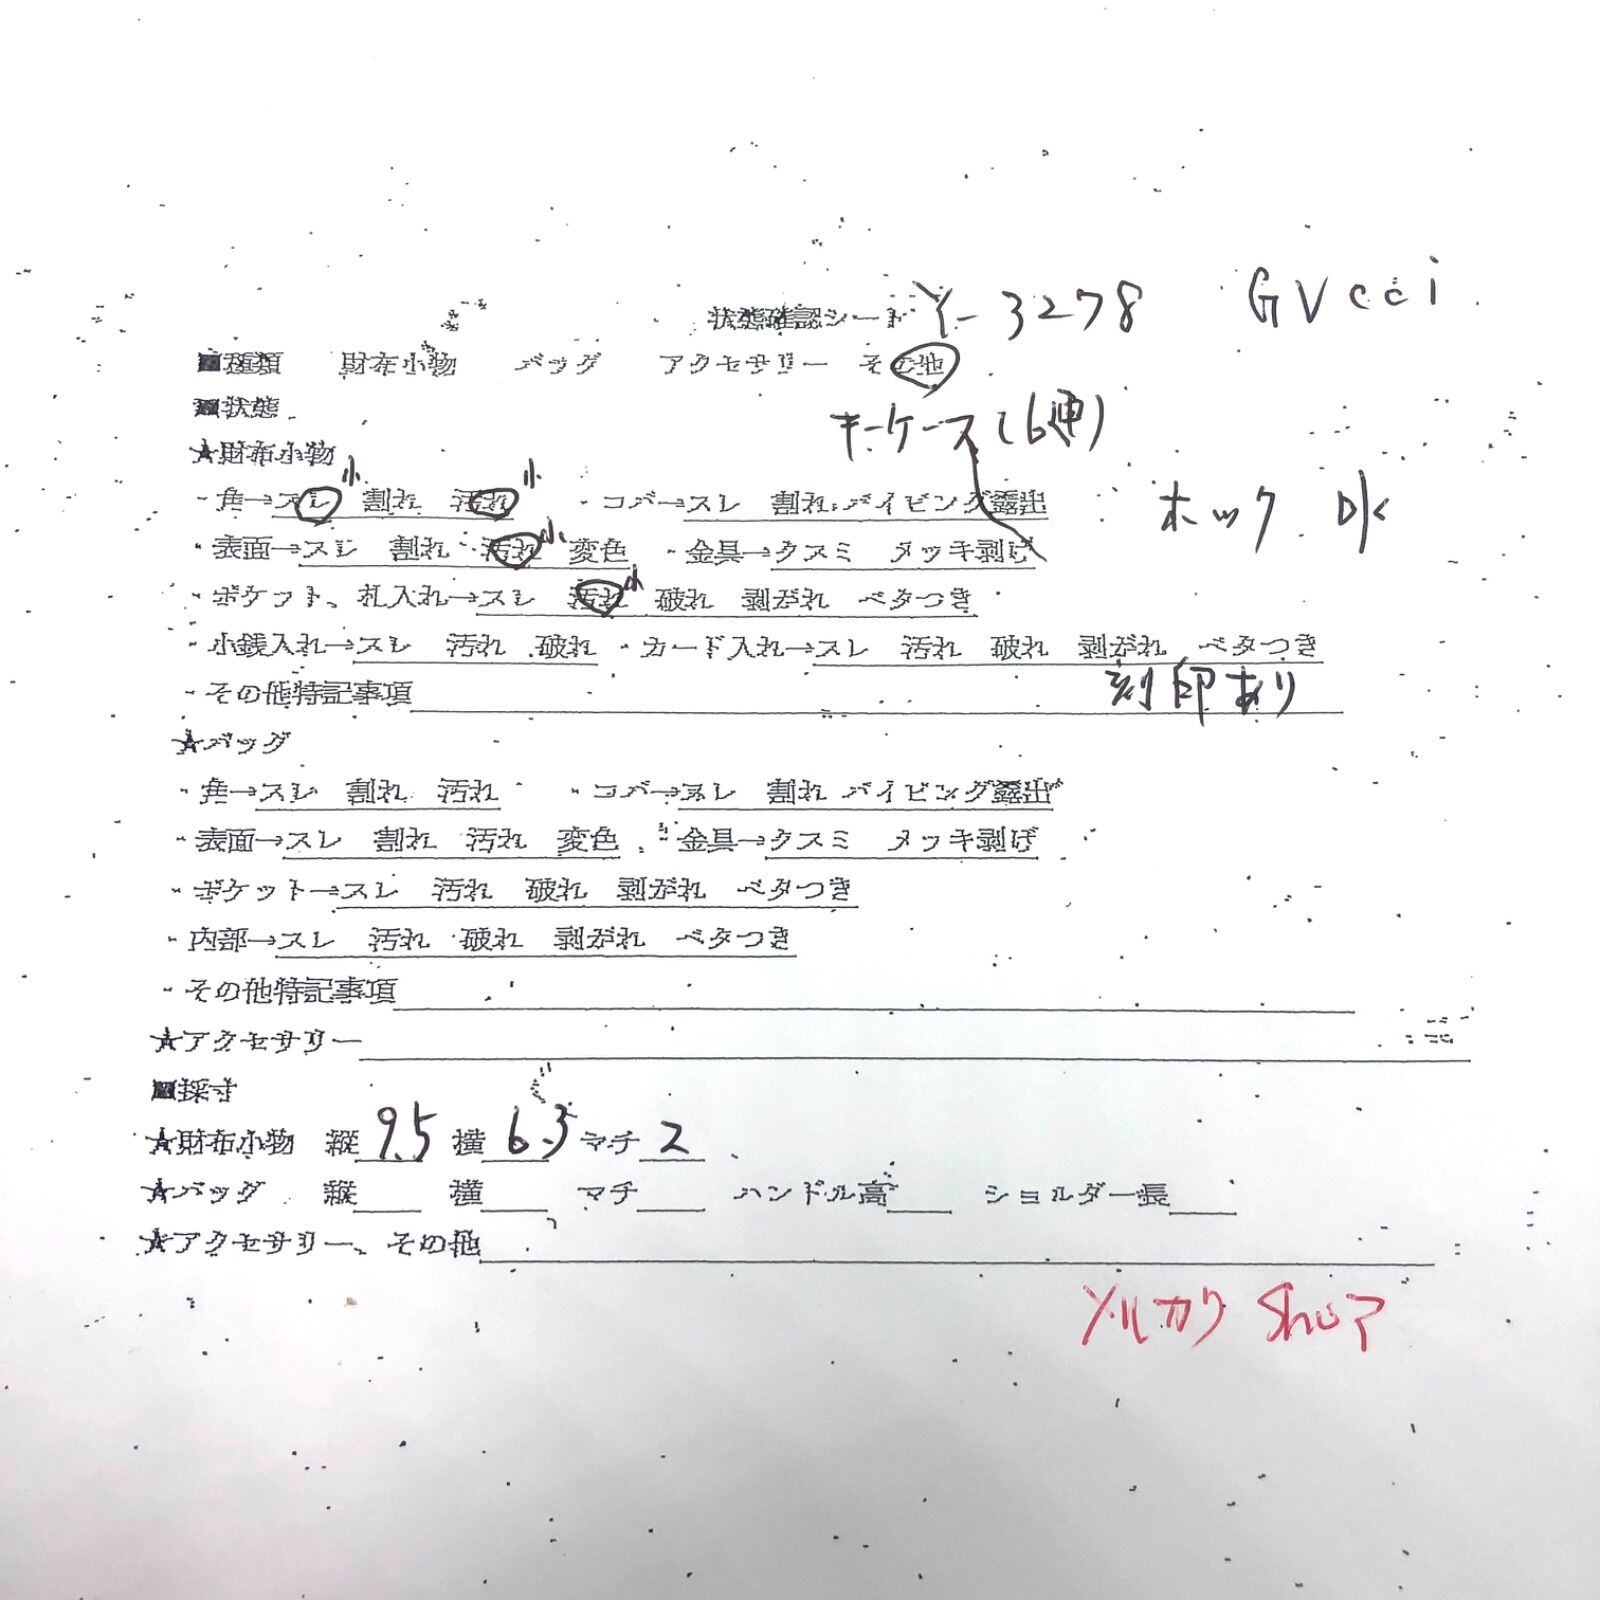 状態確認シート Y-3278 GVcci
■種類 財布小物 バッグ アクセサリー その他
■状態 キーケース(6連)
★財布小物
・角→スレ小 割れ 汚れ小 ・コバ→スレ 割れ パイピング露出 ホック OK
・表面→スレ 割れ 汚れ小 変色 ・金具→クスミ メッキ剥げ
・ポケット、札入れ→スレ 汚れ小 破れ 剥がれ ベタつき
・小銭入れ→スレ 汚れ 破れ ・カード入れ→スレ 汚れ 破れ 剥がれ ベタつき
・その他特記事項 刻印あり
★バッグ
・角→スレ 割れ 汚れ ・コバ→スレ 割れ パイピング露出
・表面→スレ 割れ 汚れ 変色 ・金具→クスミ メッキ剥げ
・ポケット→スレ 汚れ 破れ 剥がれ ベタつき
・内部→スレ 汚れ 破れ 剥がれ ベタつき
・その他特記事項
★アクセサリー
■採寸
★財布小物 縦9.5 横6.5 マチ2
★バッグ 縦 横 マチ ハンドル高 ショルダー長
★アクセサリー、その他
メルカリ Shop